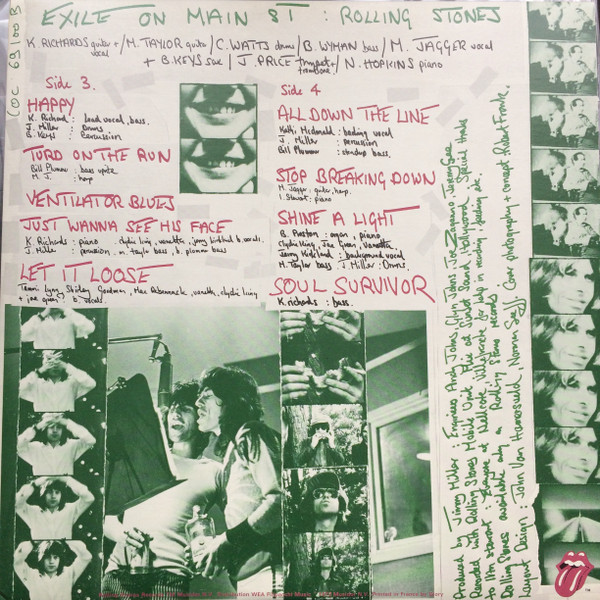 EXILE ON MAIN ST : ROLLING STONES
K. RICHARDS guitar + / M. TAYLOR guitar / C. WATTS drums / B. WYMAN bass / M. JAGGER vocal
vocal
+ B. KEYS sax / J. PRICE trumpet + / N. HOPKINS piano
trombone
COC 69100 B
Side 3.
HAPPY
K. Richard : lead vocal, bass.
J. Miller : Drums
B. Keys : Percussion
TURD ON THE RUN
Bill Plummer : bass
M. J. : harp
VENTILATOR BLUES
JUST WANNA SEE HIS FACE
K. Richards : piano clydie king, vanetta, jerry b. vocals.
J. Miller : percussion, m. taylor bass, b. plummer bass
LET IT LOOSE
Tammi Lynn, Shirley Goodman, Mac Rebennack, vanetta, clydie king
+ joe green b. vocals.
Side 4
ALL DOWN THE LINE
Kathi Mcdonald : backing vocal
J. Miller : percussion
Bill Plummer : standup bass.
STOP BREAKING DOWN
M. Jagger : guitar, harp.
I. Stewart : piano
SHINE A LIGHT
B. Preston : organ, piano
Clydie King, Joe Green, Vanetta,
Jerry : background vocal
M. Taylor bass J. Miller : Drums.
SOUL SURVIVOR
K. richards : bass.
Produced by Jimmy Miller : Engineers Andy Johns, Glyn Johns, Joe Zagarino, Jeremy Gee
Recorded with Rolling Stones Mobile Unit. Mix at Sunset Sound, Hollywood. Special thanks
to Ian Stewart : at Nellcote, Villefranche for help in recording
Rolling Stones available only on Rolling Stones records
Layout Design : John Van Hamersveld, Norman Seeff : Cover photography + concept Robert Frank.
TM